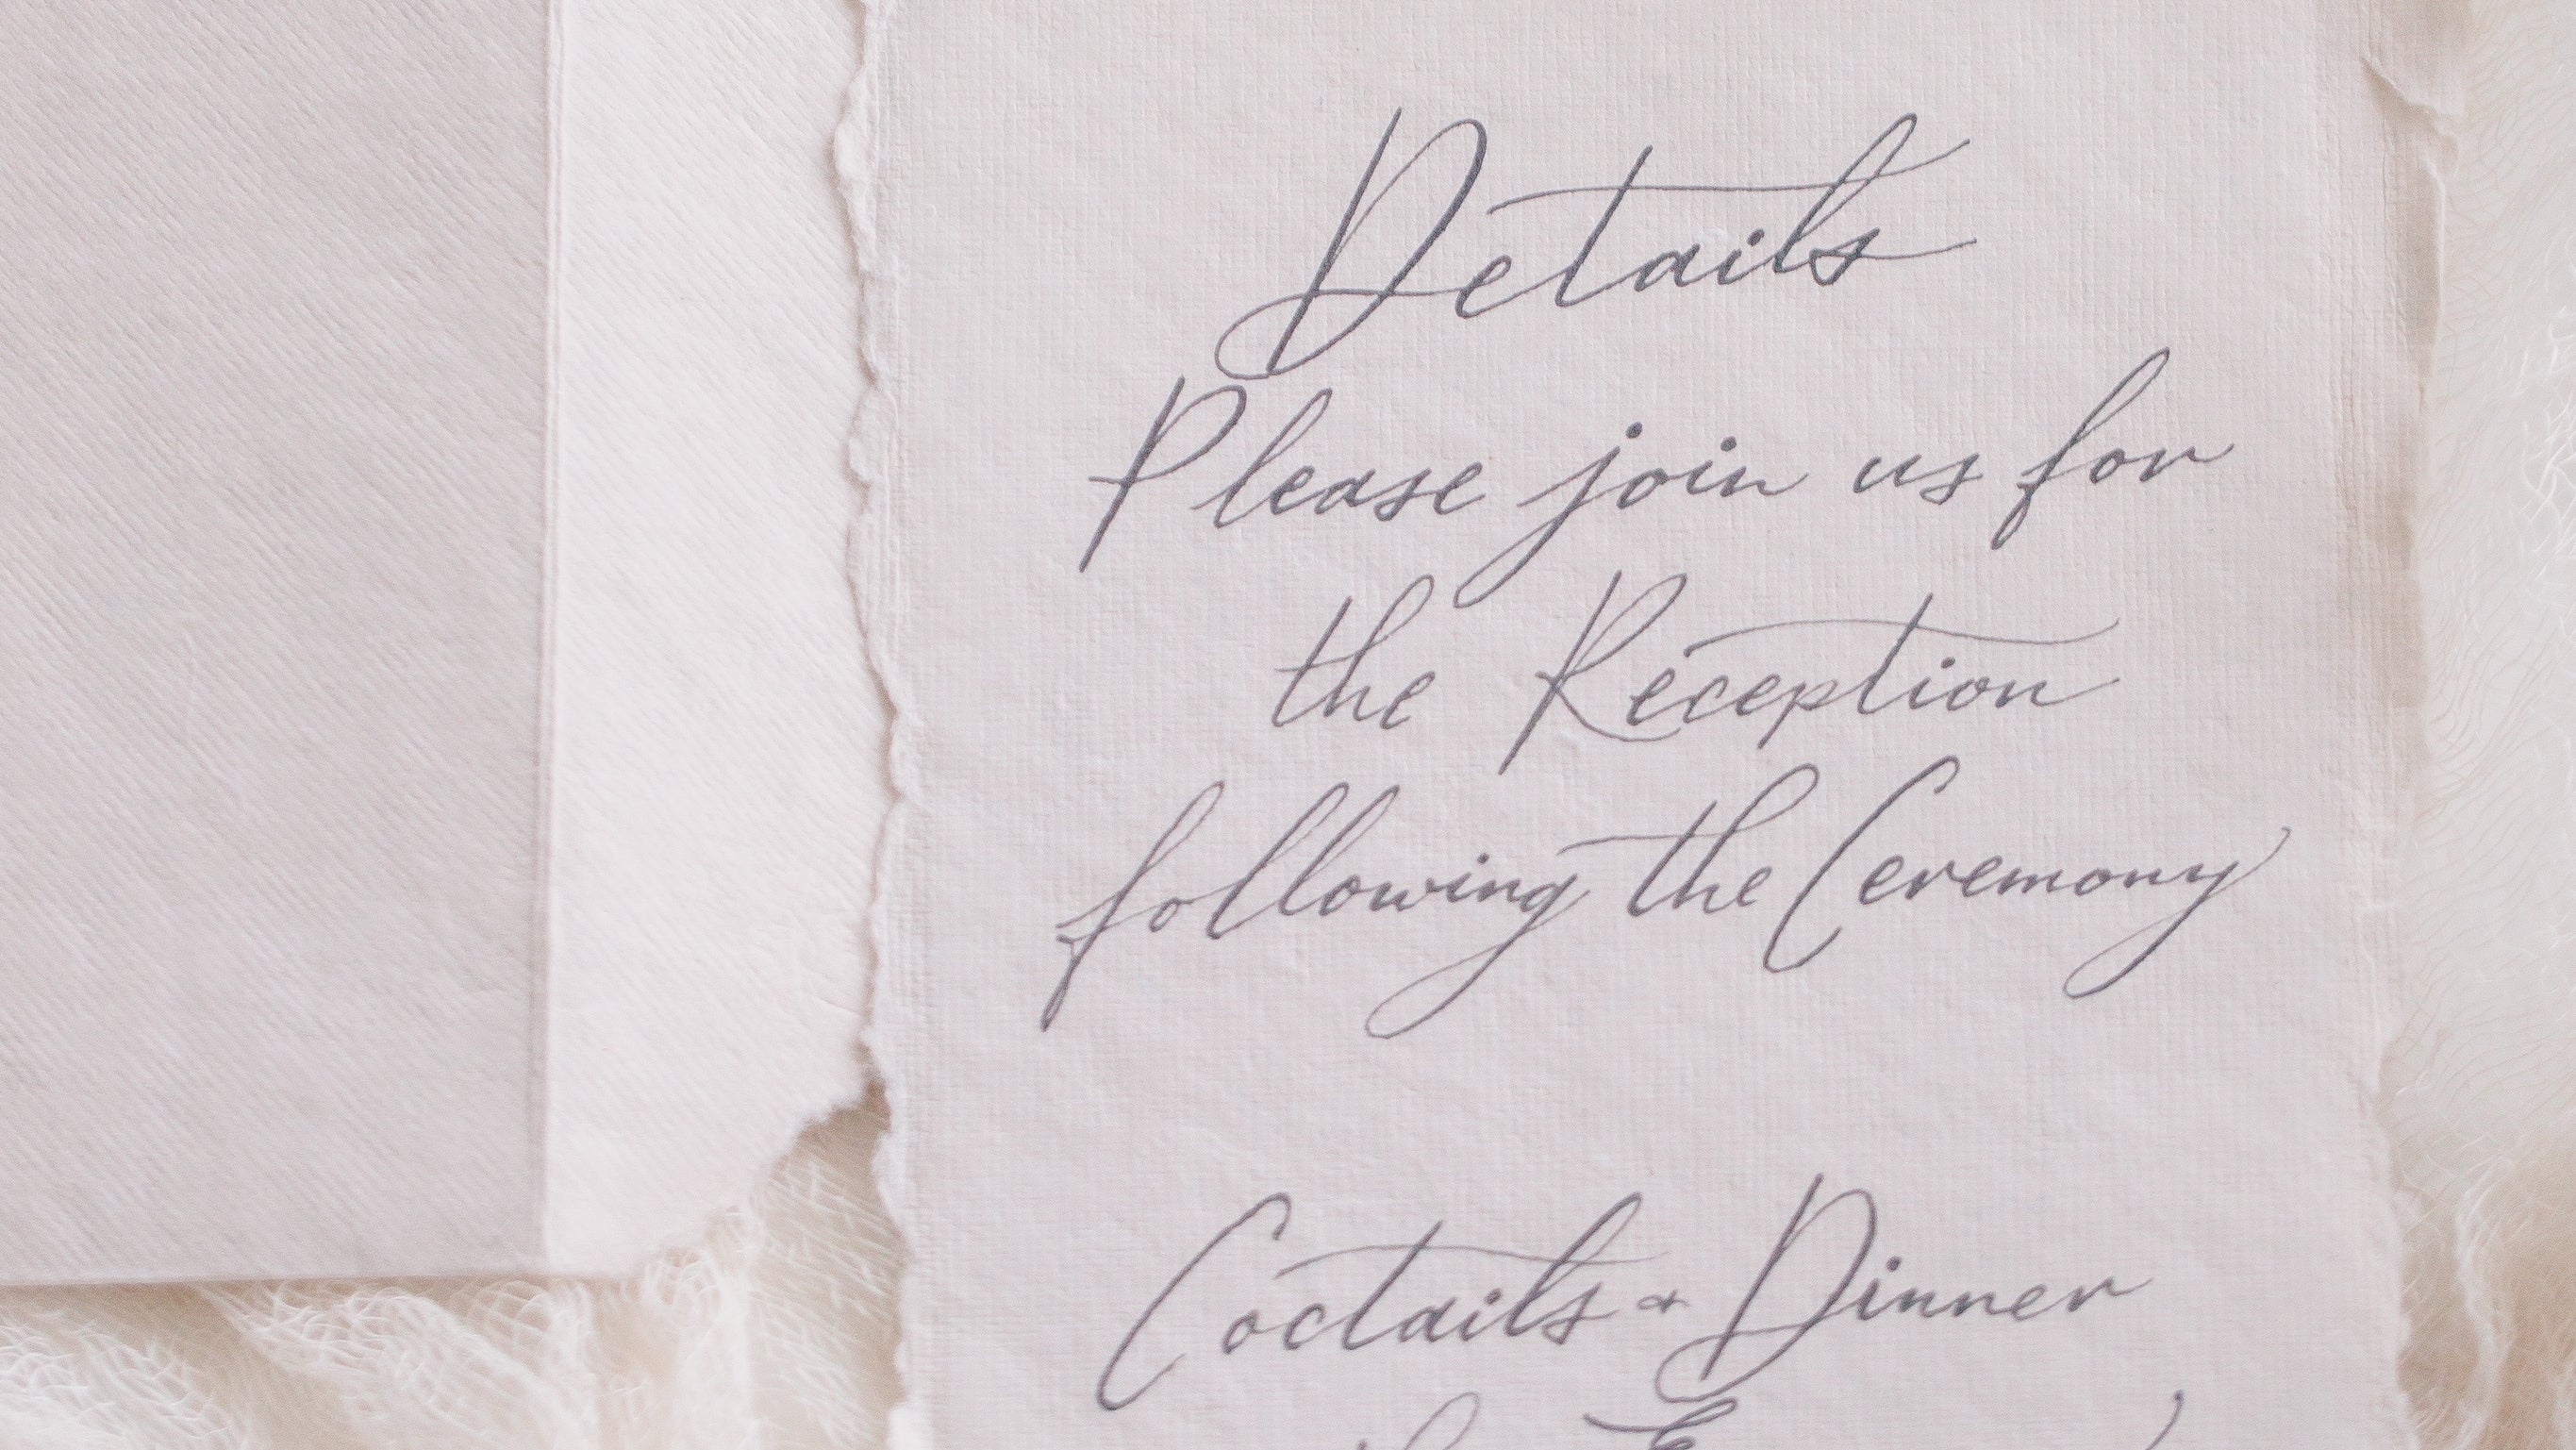 Details
Please join us for
the Reception
following the Ceremony
Coctails & Dinner